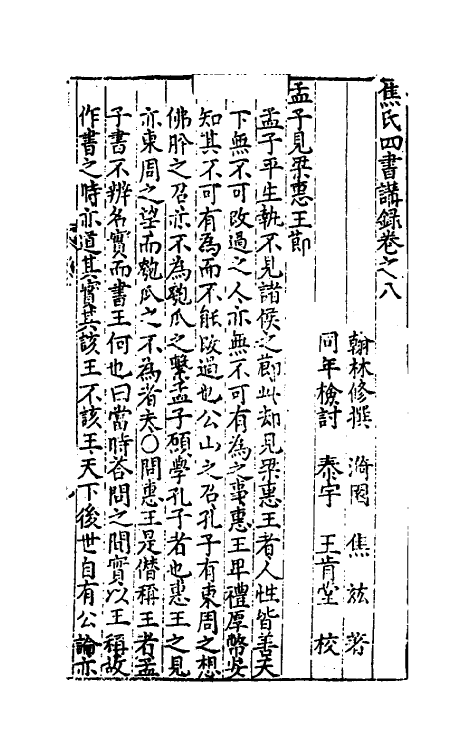 焦氏四書講録卷之八
翰林修撰 漪園 焦 竑 著
同年檢討 泰宇 王肯堂 校
孟子見梁惠王節
孟子平生執不見諸侯之節此却見梁惠王者人性皆善天
下無不可改過之人亦無不可有為之事惠王卑禮厚幣安
知其不可有為而不能改過也公山之召孔子有東周之想
佛肸之召亦不為匏瓜之繫孟子願學孔子者也惠王之見
亦東周之望而匏瓜之不為者夫○問惠王是僭稱王者孟
子書不辨名實而書王何也曰當時荅問之間實以王稱故
作書之時亦道其實其該王不該王天下後世自有公論亦